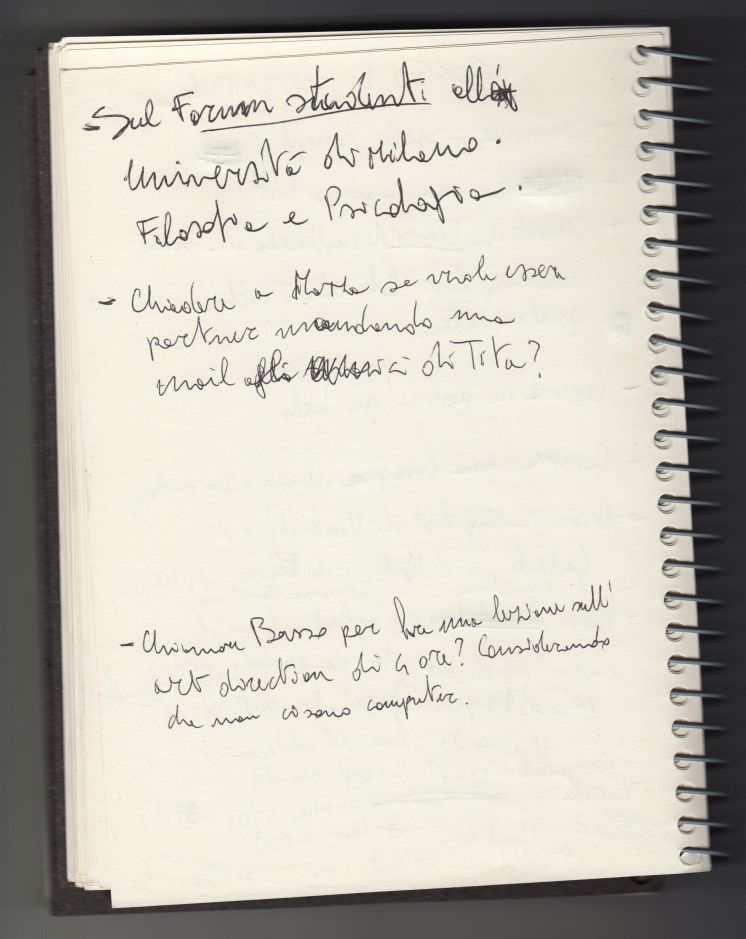 - Sul Forum studenti all'
Università di Milano.
Filosofia e Psicologia.
- Chiedere a Marta se vuole essere
partner mandando una
mail agli amici di Tita?
- Chiamare Basso per fare una lezione sull'
art direction di 4 ore? Considerando
che non ci sono computer.